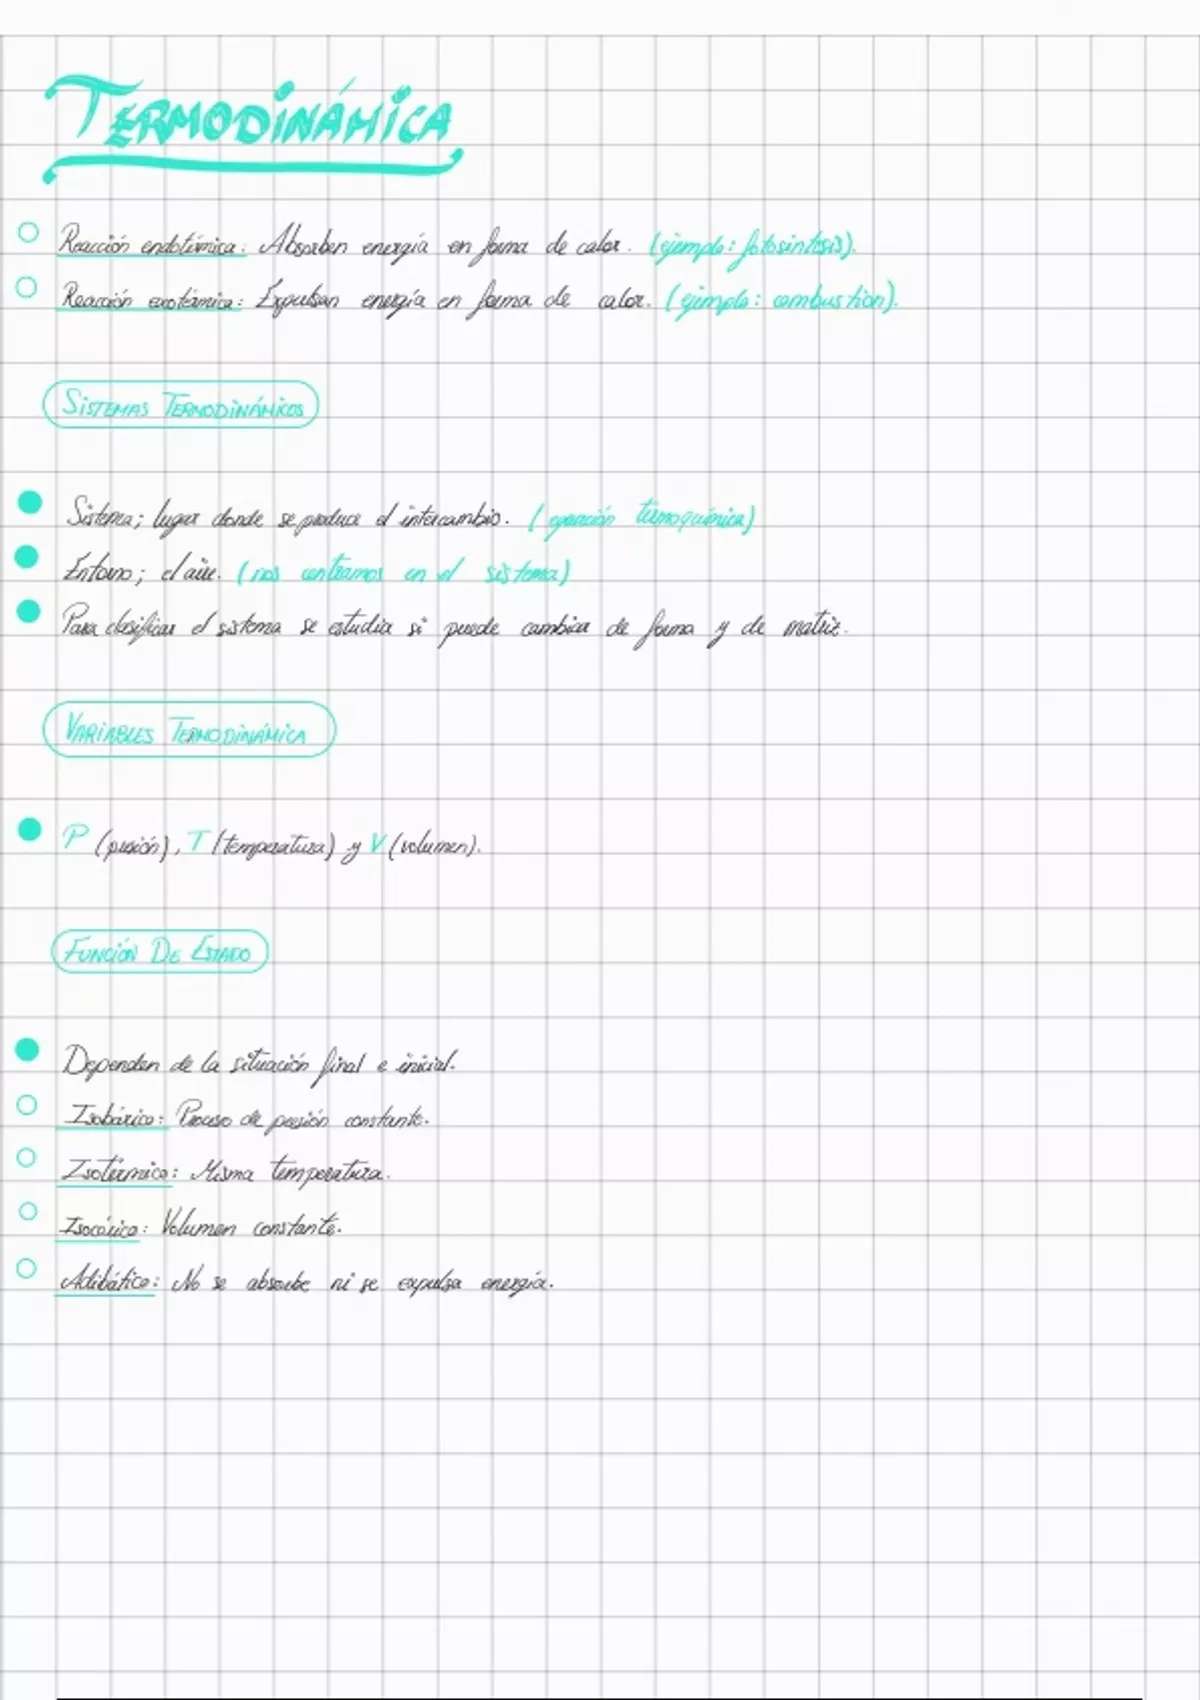 TERMODINÁMICA
Reacción endotérmica: Absorben energía en forma de calor. (ejemplo: fotosíntesis).
Reacción exotérmica: Expulsan energía en forma de calor. (ejemplo: combustion).
SISTEMAS TERMODINÁMICOS
Sistema; lugar donde se produce el intercambio. (ecuación termoquímica)
Entorno; el aire. (nos centramos en el sistema)
Para clasificar el sistema se estudia si puede cambiar de forma y de matriz.
VARIABLES TERMODINÁMICA
P (presión), T (temperatura) y V (volumen).
FUNCIÓN DE ESTADO
Dependen de la situación final e inicial.
Isobárico: Proceso de presión constante.
Isotérmico: Misma temperatura.
Isocórico: Volumen constante.
Adibático: No se absorbe ni se expulsa energía.